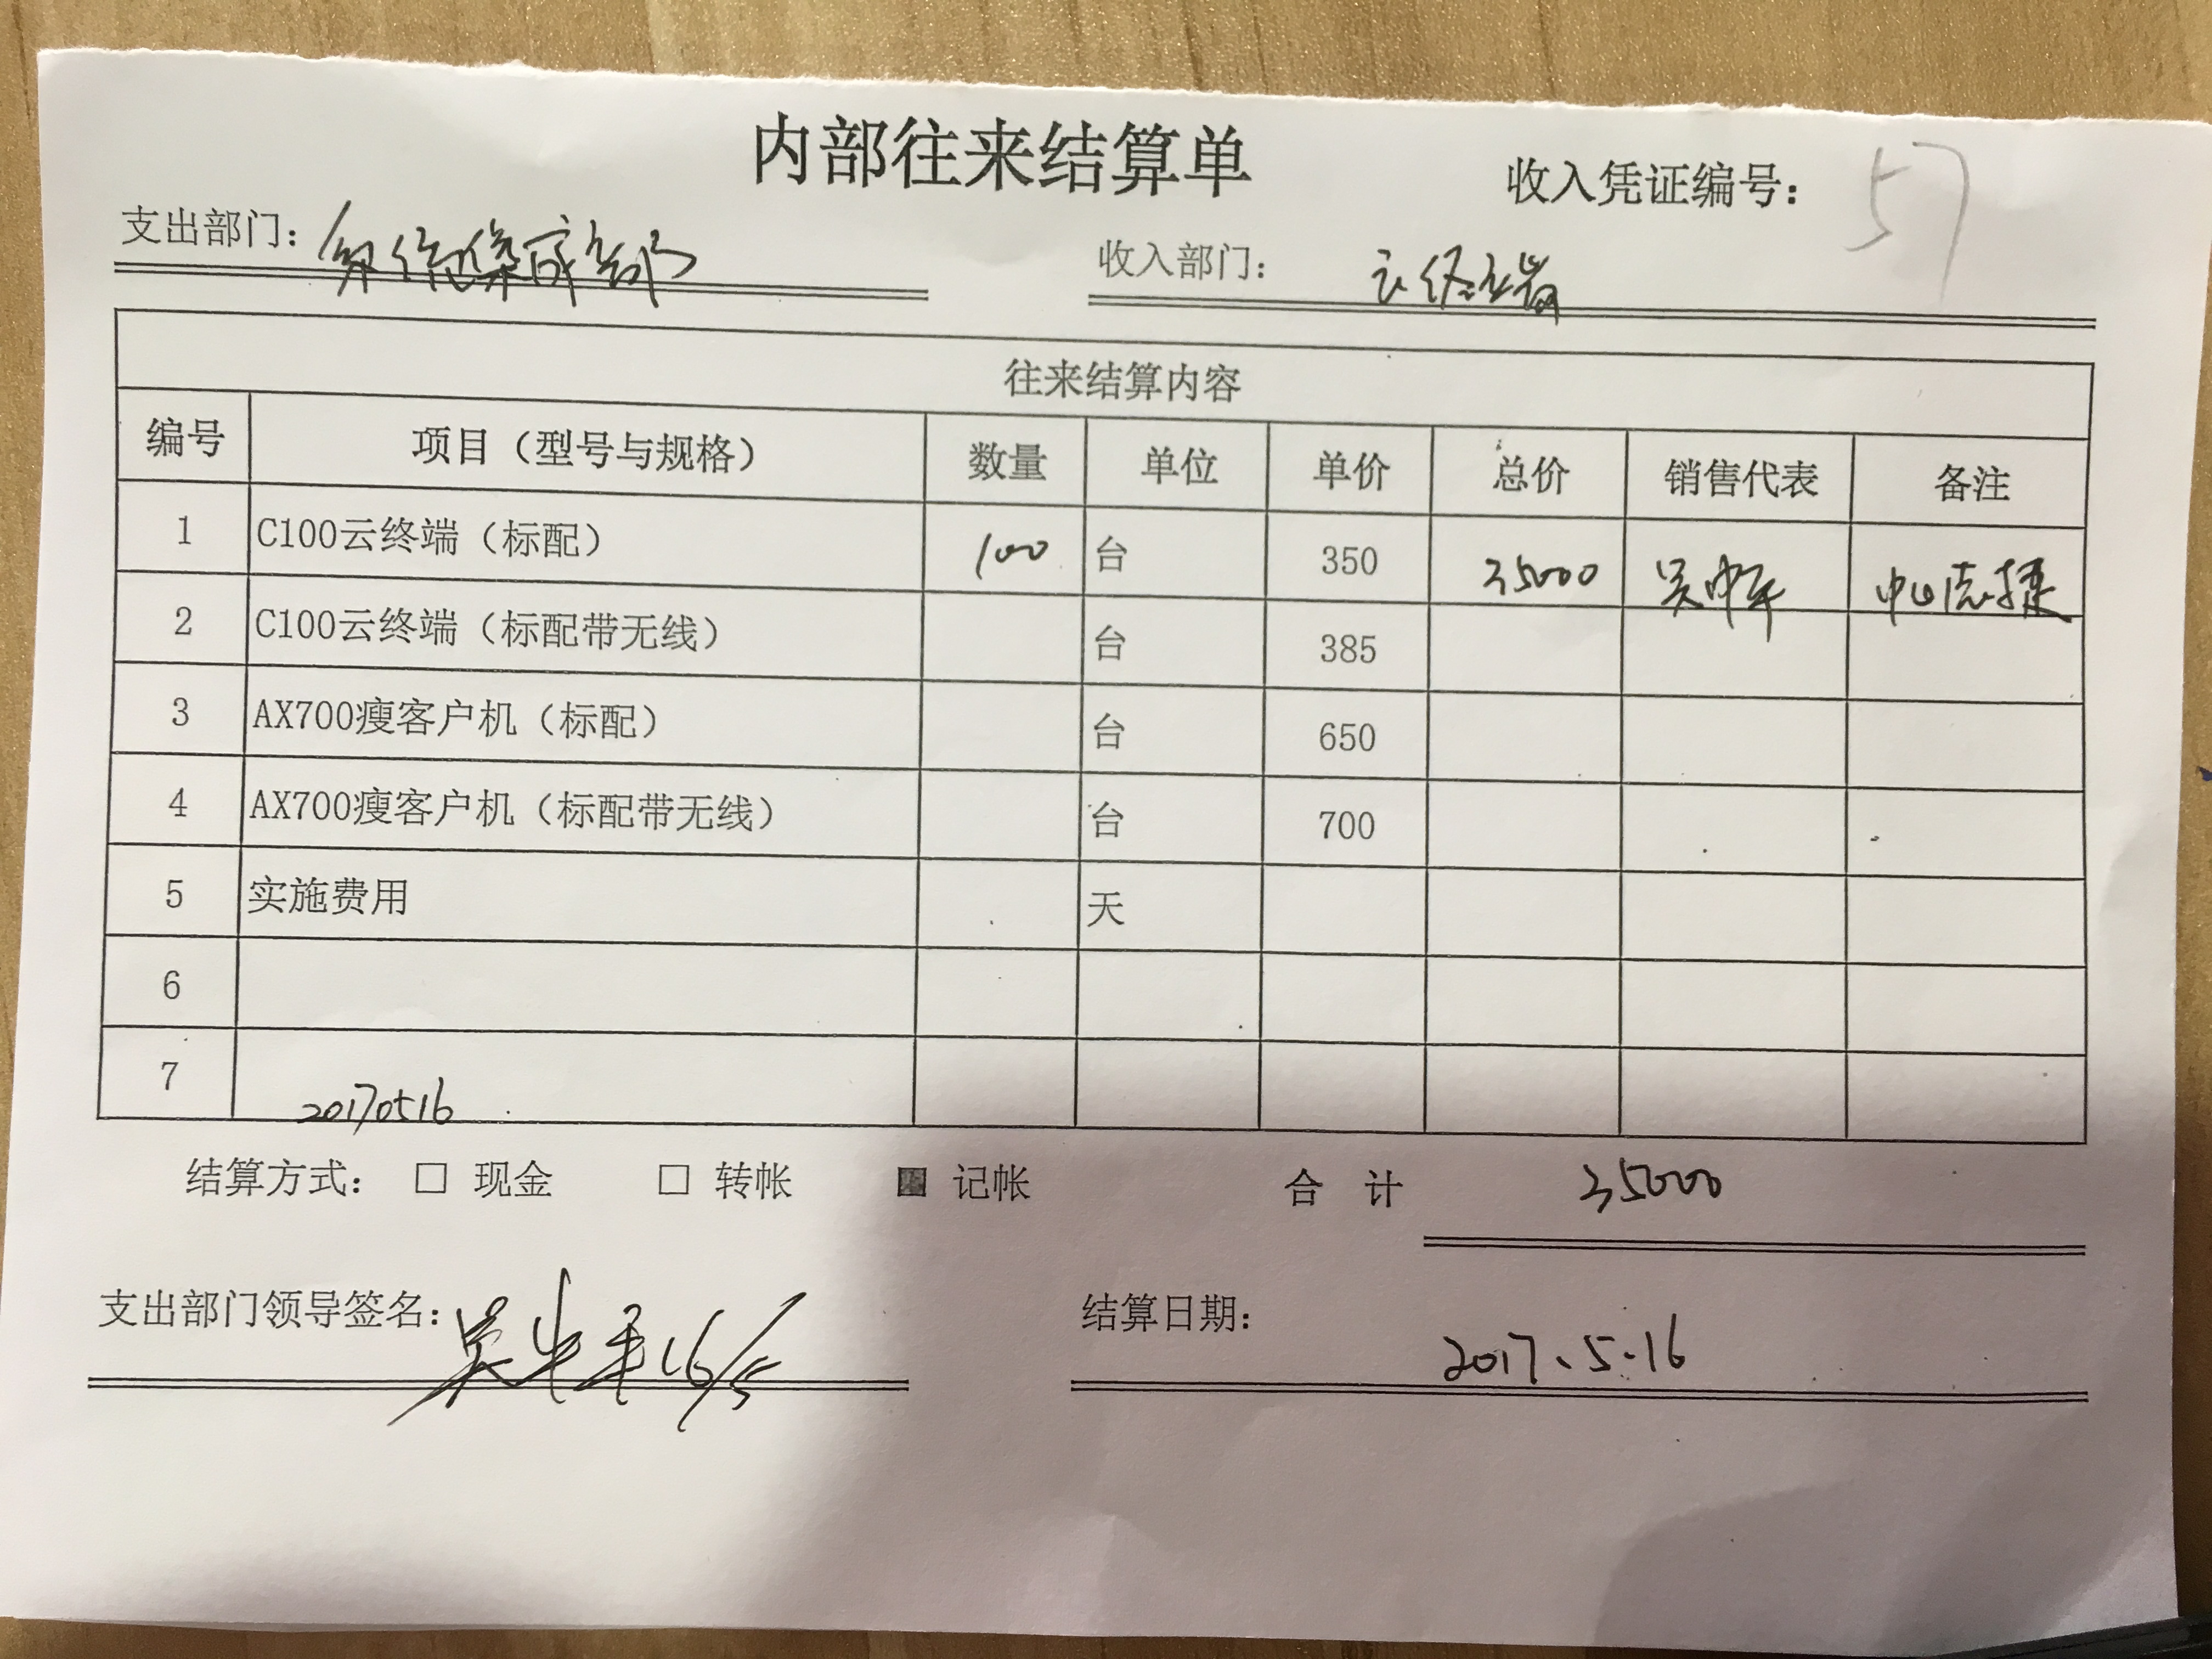 内部往来结算单
收入凭证编号： 57
支出部门： 系统集成部门
收入部门： 云终端
往来结算内容
编号 项目（型号与规格） 数量 单位 单价 总价 销售代表 备注
1 C100云终端（标配） 100 台 350 35000 吴 中山
2 C100云终端（标配带无线） 台 385
3 AX700瘦客户机（标配） 台 650
4 AX700瘦客户机（标配带无线） 台 700
5 实施费用 天
6
7 20170516
结算方式： □ 现金 □ 转帐 ■ 记帐 合 计 35000
支出部门领导签名： 吴 16/5
结算日期： 2017.5.16